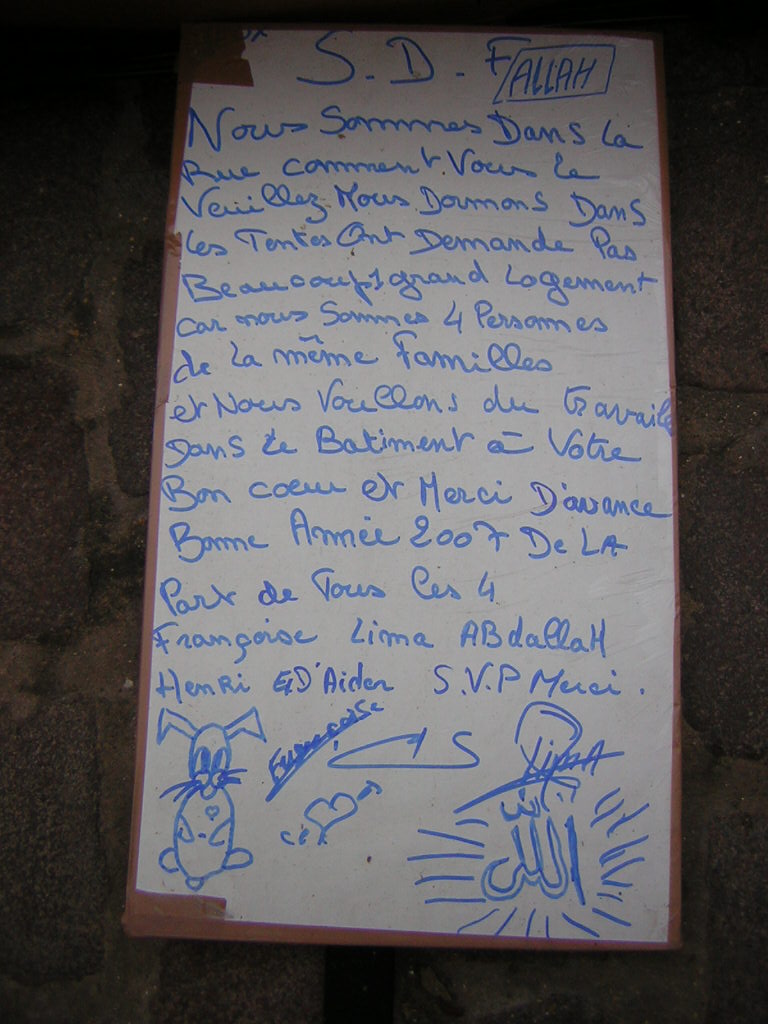 S.D.F
ALLAH
Nous Sommes Dans la
Rue comment Vous le
Veuillez Nous Dormons Dans
les Tentes Ont Demande Pas
Beaucoup 1 grand Logement
car nous Sommes 4 Personnes
de La même Familles
et Nous Voullons du travaile
Dans le Batiment à Votre
Bon coeur et Merci D'avance
Bonne Année 2007 De LA
Part de Tous les 4
Françoise Lima ABdallaH
Henri D'Aider S.V.P Merci.
Françoise
Lima
الله